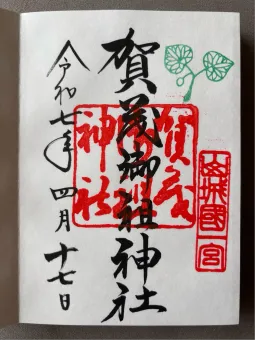 山城國一宮
賀茂御祖神社
賀茂
御祖
神社
令和七年 四月 十七日